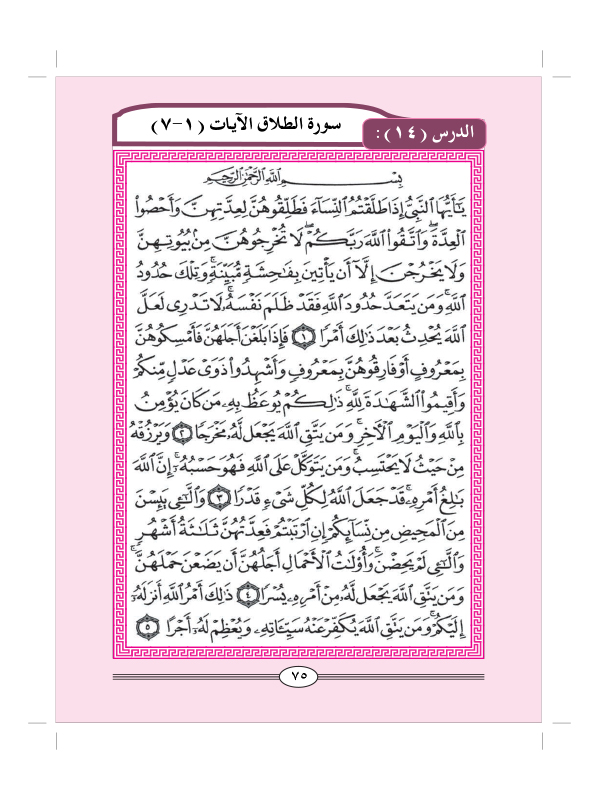 الدرس (١٤):
سورة الطلاق الآيات (١-٧)
بِسْمِ اللَّهِ الرَّحْمَٰنِ الرَّحِيمِ
يَٰٓأَيُّهَا ٱلنَّبِىُّ إِذَا طَلَّقْتُمُ ٱلنِّسَآءَ فَطَلِّقُوهُنَّ لِعِدَّتِهِنَّ وَأَحْصُوا۟
ٱلْعِدَّةَ ۖ وَٱتَّقُوا۟ ٱللَّهَ رَبَّكُمْ ۖ لَا تُخْرِجُوهُنَّ مِنۢ بُيُوتِهِنَّ
وَلَا يَخْرُجْنَ إِلَّآ أَن يَأْتِينَ بِفَٰحِشَةٍ مُّبَيِّنَةٍ ۚ وَتِلْكَ حُدُودُ
ٱللَّهِ ۚ وَمَن يَتَعَدَّ حُدُودَ ٱللَّهِ فَقَدْ ظَلَمَ نَفْسَهُۥ ۚ لَا تَدْرِى لَعَلَّ
ٱللَّهَ يُحْدِثُ بَعْدَ ذَٰلِكَ أَمْرًا ١ فَإِذَا بَلَغْنَ أَجَلَهُنَّ فَأَمْسِكُوهُنَّ
بِمَعْرُوفٍ أَوْ فَارِقُوهُنَّ بِمَعْرُوفٍ وَأَشْهِدُوا۟ ذَوَىْ عَدْلٍ مِّنكُمْ
وَأَقِيمُوا۟ ٱلشَّهَٰدَةَ لِلَّهِ ۚ ذَٰلِكُمْ يُوعَظُ بِهِۦ مَن كَانَ يُؤْمِنُ
بِٱللَّهِ وَٱلْيَوْمِ ٱلْءَاخِرِ ۚ وَمَن يَتَّقِ ٱللَّهَ يَجْعَل لَّهُۥ مَخْرَجًا ٢ وَيَرْزُقْهُ
مِنْ حَيْثُ لَا يَحْتَسِبُ ۚ وَمَن يَتَوَكَّلْ عَلَى ٱللَّهِ فَهُوَ حَسْبُهُۥٓ ۚ إِنَّ ٱللَّهَ
بَٰلِغُ أَمْرِهِۦ ۚ قَدْ جَعَلَ ٱللَّهُ لِكُلِّ شَىْءٍ قَدْرًا ٣ وَٱلَّٰٓـِٔى يَئِسْنَ
مِنَ ٱلْمَحِيضِ مِن نِّسَآئِكُمْ إِنِ ٱرْتَبْتُمْ فَعِدَّتُهُنَّ ثَلَٰثَةُ أَشْهُرٍ
وَٱلَّٰٓـِٔى لَمْ يَحِضْنَ ۚ وَأُو۟لَٰتُ ٱلْأَحْمَالِ أَجَلُهُنَّ أَن يَضَعْنَ حَمْلَهُنَّ ۚ
وَمَن يَتَّقِ ٱللَّهَ يَجْعَل لَّهُۥ مِنْ أَمْرِهِۦ يُسْرًا ٤ ذَٰلِكَ أَمْرُ ٱللَّهِ أَنزَلَهُۥٓ
إِلَيْكُمْ ۚ وَمَن يَتَّقِ ٱللَّهَ يُكَفِّرْ عَنْهُ سَيِّـَٔاتِهِۦ وَيُعْظِمْ لَهُۥٓ أَجْرًا ٥
٧٥